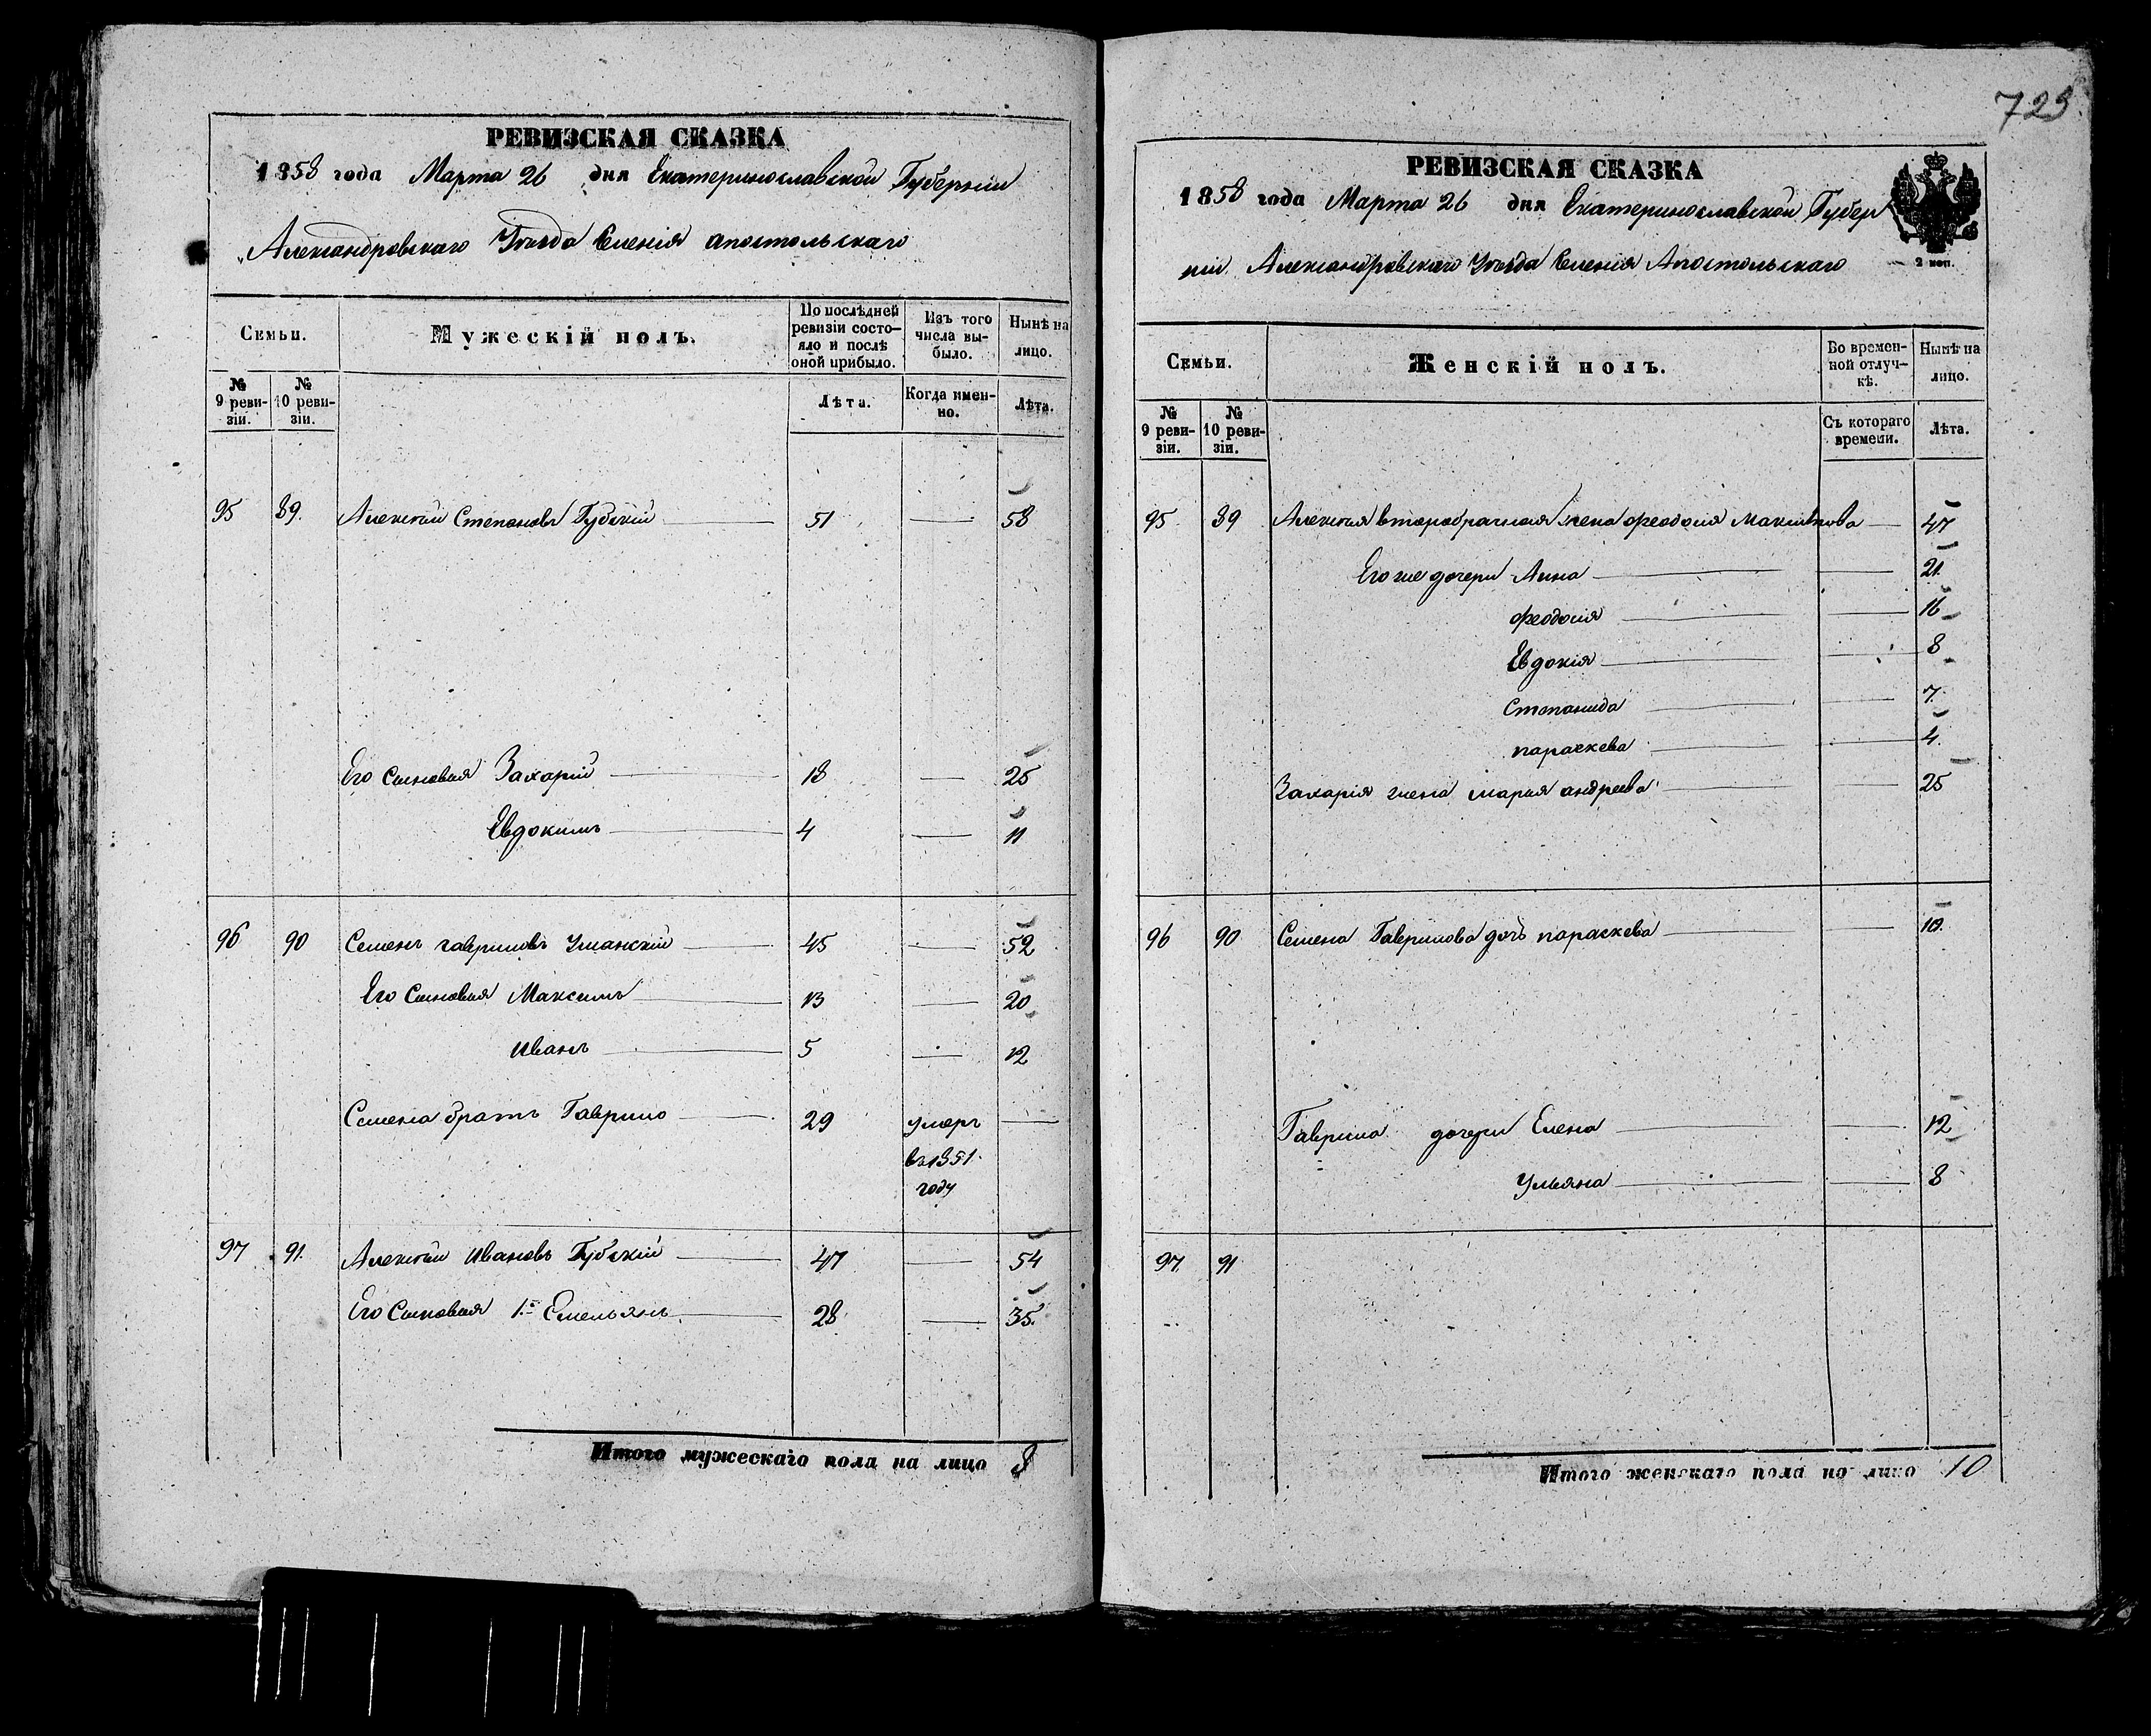 РЕВИЗСКАЯ СКАЗКА
1858 года Марта 26 дня Екатеринославской Губернии
Александровскаго Уѣзда Селенія апостольскаго
Семьи.
Мужескій полъ.
По послѣдней ревизіи состояло и послѣ оной прибыло.
Изъ того числа выбыло.
Нынѣ на лицо.
№ 9 ревизіи.
№ 10 ревизіи.
Лѣта.
Когда именно.
Лѣта.
95 89. Алексѣй Степановъ Губскій 51 58
Его сыновья Захарій 18 25
Евдокимъ 4 11
96 90 Семенъ гавриловъ Уманскій 45 52
Его сыновья Максимъ 13 20
Иванъ 5 12
Семена братъ Гаврило 29 умеръ
въ 1851
году
97 91. Алексѣй Ивановъ Губскій 47 54
Его сыновья 1.й Емельянъ 28 35.
Итого мужескаго пола на лицо 8
723
РЕВИЗСКАЯ СКАЗКА
1858 года Марта 26 дня Екатеринославской Губер
ніи Александровскаго Уѣзда Селенія Апостольскаго
2 коп.
Семьи.
Женскій полъ.
Во временной отлучкѣ.
Нынѣ на лицо.
№ 9 ревизіи.
№ 10 ревизіи.
Съ котораго времени.
Лѣта.
95 89 Алексѣя второбрачная жена феодосія Максимова 47
Его же дочери Анна 21.
феодосія 16
Евдокія 8
Степанида 7.
параскева 4.
Захарія жена марья андреева 25
96 90 Семена Гаврилова дочь параскева 10.
Гаврила дочери Елена 12
Ульяна 8
97. 91
Итого женскаго пола на лицо 10